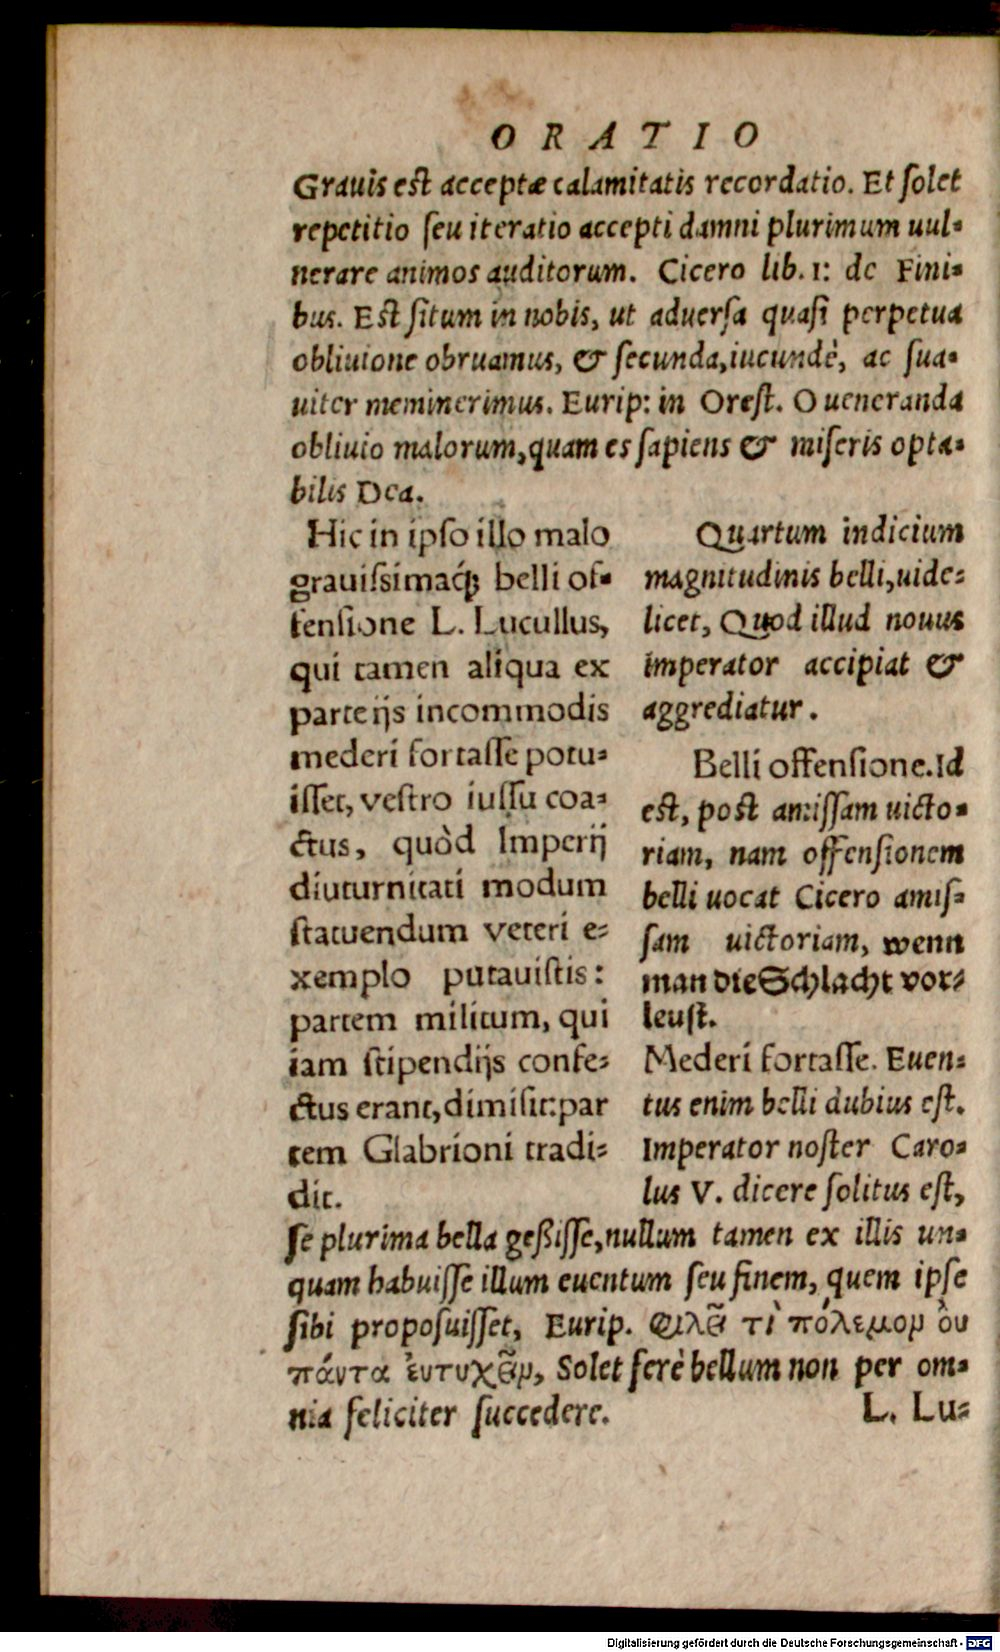 ORATIO
Grauis est acceptæ calamitatis recordatio. Et solet
repetitio seu iteratio accepti damni plurimum uul-
nerare animos auditorum. Cicero lib. 1: de Fini-
bus. Est situm in nobis, ut aduersa quasi perpetua
obliuione obruamus, & secunda, iucundè, ac sua-
uiter meminerimus. Eurip: in Orest. O ueneranda
obliuio malorum, quam es sapiens & miseris opta-
bilis Dea.
Hic in ipso illo malo
grauissimaq́ꝫ belli of-
fensione L. Lucullus,
qui tamen aliqua ex
parte ijs incommodis
mederi fortasse potu-
isset, vestro iussu coa-
ctus, quòd Imperij
diuturnitati modum
statuendum veteri e-
xemplo putauistis:
partem militum, qui
iam stipendijs confe-
ctus erant, dimisit: par
tem Glabrioni tradi-
dit.
Quartum indicium
magnitudinis belli, uide-
licet, Quod illud nouus
imperator accipiat &
aggrediatur.
Belli offensione. Id
est, post amissam uicto-
riam, nam offensionem
belli uocat Cicero amis-
sam uictoriam, wenn
man die Schlacht vor-
leust.
Mederi fortasse. Euen-
tus enim belli dubius est.
Imperator noster Caro-
lus V. dicere solitus est,
se plurima bella geßisse, nullum tamen ex illis un-
quam habuisse illum euentum seu finem, quem ipse
sibi proposuisset, Eurip. Φιλεῖ τὶ πόλεμον ὀυ
πάντα ἐυτυχεῖν, Solet ferè bellum non per om-
nia feliciter succedere.
L. Lu-
Digitalisierung gefördert durch die Deutsche Forschungsgemeinschaft - DFG